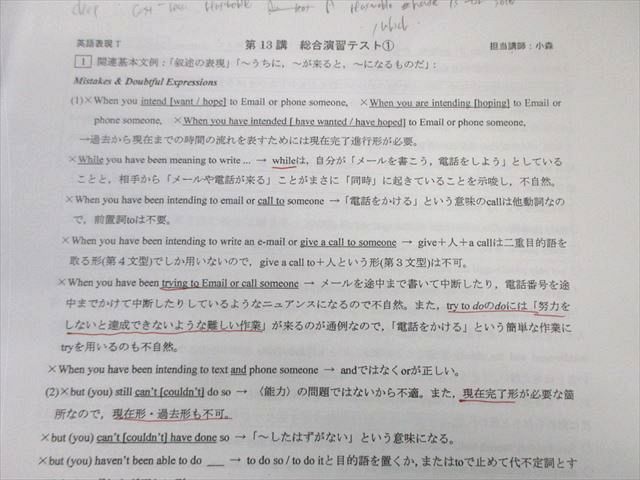 英語表現T
第13講 総合演習テスト①
担当講師：小森
1 関連基本文例：「叙述の表現」「～うちに，～が来ると，～になるものだ」：
Mistakes & Doubtful Expressions
(1)×When you intend [want / hope] to Email or phone someone, ×When you are intending [hoping] to Email or
phone someone, ×When you have intended [ have wanted / have hoped] to Email or phone someone,
→過去から現在までの時間の流れを表すためには現在完了進行形が必要。
×While you have been meaning to write ... → whileは，自分が「メールを書こう，電話をしよう」としている
ことと，相手から「メールや電話が来る」ことがまさに「同時」に起きていることを示唆し，不自然。
×When you have been intending to email or call to someone →「電話をかける」という意味のcallは他動詞なの
で，前置詞toは不要。
×When you have been intending to write an e-mail or give a call to someone → give＋人＋a callは二重目的語を
取る形(第４文型)でしか用いないので，give a call to＋人という形(第３文型)は不可。
×When you have been trying to Email or call someone → メールを途中まで書いて中断したり，電話番号を途
中までかけて中断したりしているようなニュアンスになるので不自然。また，try to doのdoには「努力を
しないと達成できないような難しい作業」が来るのが通例なので，「電話をかける」という簡単な作業に
tryを用いるのも不自然。
×When you have been intending to text and phone someone → andではなくorが正しい。
(2)×but (you) still can't [couldn't] do so → 〈能力〉の問題ではないから不適。また，現在完了形が必要な箇
所なので，現在形・過去形も不可。
×but (you) can't [couldn't] have done so →「～したはずがない」という意味になる。
×but (you) haven't been able to do ___ → to do so / to do itと目的語を置くか，またはtoで止めて代不定詞とす